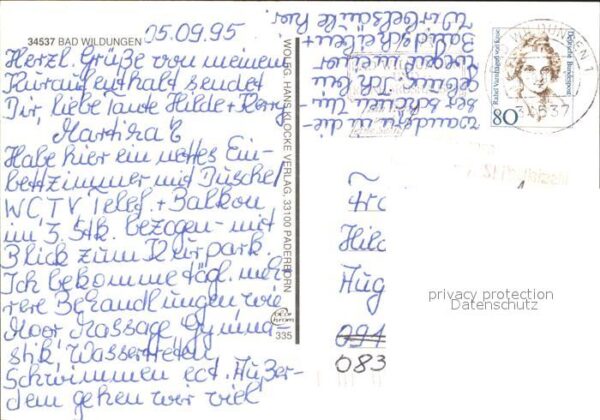 34537 BAD WILDUNGEN
05.09.95
Herzl. Grüße von meinem
Kuraufenthalt sendet
Dir, liebe Tante Hilde + Harry
Martina E
Habe hier ein nettes Ein-
bettzimmer mit Dusche/
WC, TV Telef. + Balkon
im 3. Stk. bezogen - mit
Blick zum Kurpark.
Ich bekomme tägl. meh-
rere Behandlungen wie
Moor Massage Gymna-
stik, Wassertreten
Schwimmen ect. Außer-
dem gehen wir viel
wandern in die-
ser schönen Um-
gebung. Ich bin
wegen meiner
Bandscheiben +
Wirbelsäule hier.
WOLFG. HANS KLOCKE VERLAG, 33100 PADERBORN
335
Deutsche Bundespost
Rahel Varnhagen von Ense
80
BAD WILDUNGEN 1
34537
Hild
Aug
091
083
privacy protection
Datenschutz